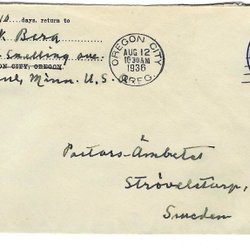 10 days, return to
k Berg
Snelling ave.
ON CITY, OREGON
Paul, Minn. U.S.A.
OREGON CITY
AUG 12
10 30 AM
1936
OREG.
à
Pastors-Ämbetet
Strövelstorp,
Sweden